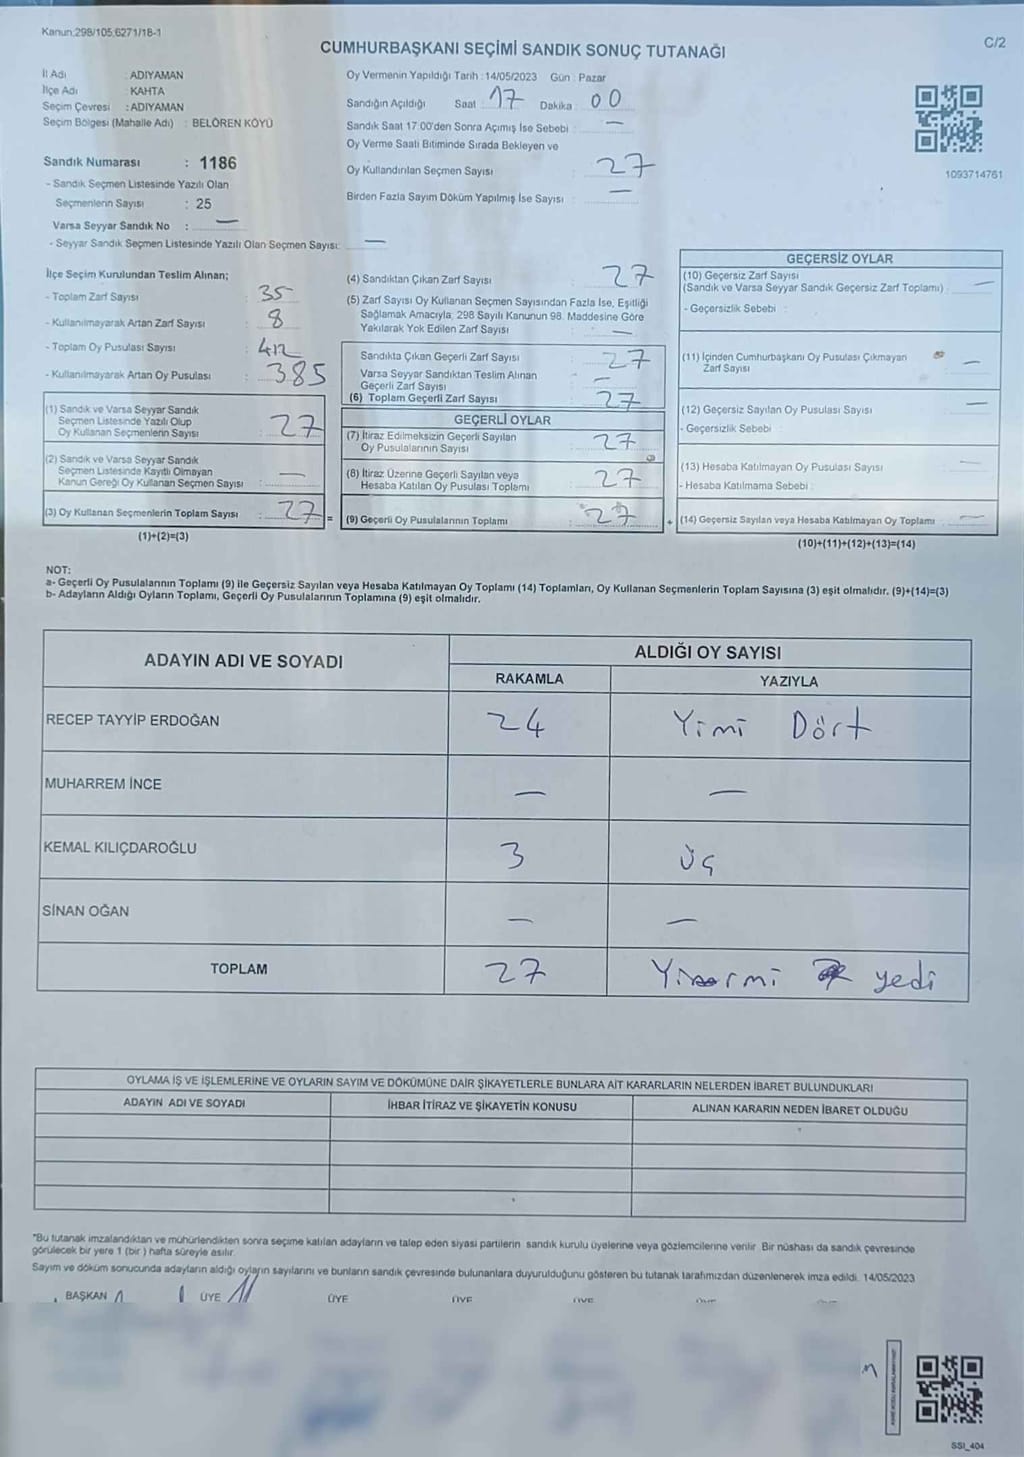 Kanun:298/105,6271/18-1
C/2
CUMHURBAŞKANI SEÇİMİ SANDIK SONUÇ TUTANAĞI
İl Adı : ADIYAMAN
İlçe Adı : KAHTA
Seçim Çevresi : ADIYAMAN
Seçim Bölgesi (Mahalle Adı) : BELÖREN KÖYÜ
Sandık Numarası : 1186
- Sandık Seçmen Listesinde Yazılı Olan
Seçmenlerin Sayısı : 25
Varsa Seyyar Sandık No : —
- Seyyar Sandık Seçmen Listesinde Yazılı Olan Seçmen Sayısı: —
Oy Vermenin Yapıldığı Tarih : 14/05/2023 Gün : Pazar
Sandığın Açıldığı Saat 17 Dakika : 00
Sandık Saat 17:00'den Sonra Açımış İse Sebebi : —
Oy Verme Saati Bitiminde Sırada Bekleyen ve
Oy Kullandırılan Seçmen Sayısı : 27
Birden Fazla Sayım Döküm Yapılmış İse Sayısı : —
1093714761
İlçe Seçim Kurulundan Teslim Alınan;
- Toplam Zarf Sayısı : 35
- Kullanılmayarak Artan Zarf Sayısı : 8
- Toplam Oy Pusulası Sayısı : 412
- Kullanılmayarak Artan Oy Pusulası : 385
(1) Sandık ve Varsa Seyyar Sandık
Seçmen Listesinde Yazılı Olup
Oy Kullanan Seçmenlerin Sayısı : 27
(2) Sandık ve Varsa Seyyar Sandık
Seçmen Listesinde Kayıtlı Olmayan
Kanun Gereği Oy Kullanan Seçmen Sayısı : —
(3) Oy Kullanan Seçmenlerin Toplam Sayısı : 27 =
(1)+(2)=(3)
(4) Sandıktan Çıkan Zarf Sayısı : 27
(5) Zarf Sayısı Oy Kullanan Seçmen Sayısından Fazla İse, Eşitliği
Sağlamak Amacıyla, 298 Sayılı Kanunun 98. Maddesine Göre
Yakılarak Yok Edilen Zarf Sayısı : —
Sandıkta Çıkan Geçerli Zarf Sayısı : 27
Varsa Seyyar Sandıktan Teslim Alınan
Geçerli Zarf Sayısı : —
(6) Toplam Geçerli Zarf Sayısı : 27
GEÇERLİ OYLAR
(7) İtiraz Edilmeksizin Geçerli Sayılan
Oy Pusulalarının Sayısı : 27
(8) İtiraz Üzerine Geçerli Sayılan veya
Hesaba Katılan Oy Pusulası Toplamı : 27
(9) Geçerli Oy Pusulalarının Toplamı : 27 +
GEÇERSİZ OYLAR
(10) Geçersiz Zarf Sayısı
(Sandık ve Varsa Seyyar Sandık Geçersiz Zarf Toplamı) : —
- Geçersizlik Sebebi :
(11) İçinden Cumhurbaşkanı Oy Pusulası Çıkmayan
Zarf Sayısı —
(12) Geçersiz Sayılan Oy Pusulası Sayısı —
- Geçersizlik Sebebi :
(13) Hesaba Katılmayan Oy Pusulası Sayısı —
- Hesaba Katılmama Sebebi :
(14) Geçersiz Sayılan veya Hesaba Katılmayan Oy Toplamı : —
(10)+(11)+(12)+(13)=(14)
NOT:
a- Geçerli Oy Pusulalarının Toplamı (9) ile Geçersiz Sayılan veya Hesaba Katılmayan Oy Toplamı (14) Toplamları, Oy Kullanan Seçmenlerin Toplam Sayısına (3) eşit olmalıdır. (9)+(14)=(3)
b- Adayların Aldığı Oyların Toplamı, Geçerli Oy Pusulalarının Toplamına (9) eşit olmalıdır.
ADAYIN ADI VE SOYADI ALDIĞI OY SAYISI
RAKAMLA YAZIYLA
RECEP TAYYİP ERDOĞAN 24 Yimi Dört
MUHARREM İNCE — —
KEMAL KILIÇDAROĞLU 3 üç
SİNAN OĞAN — —
TOPLAM 27 Yirmi yedi
OYLAMA İŞ VE İŞLEMLERİNE VE OYLARIN SAYIM VE DÖKÜMÜNE DAİR ŞİKAYETLERLE BUNLARA AİT KARARLARIN NELERDEN İBARET BULUNDUKLARI
ADAYIN ADI VE SOYADI İHBAR İTİRAZ VE ŞİKAYETİN KONUSU ALINAN KARARIN NEDEN İBARET OLDUĞU
*Bu tutanak imzalandıktan ve mühürlendikten sonra seçime katılan adayların ve talep eden siyasi partilerin sandık kurulu üyelerine veya gözlemcilerine verilir. Bir nüshası da sandık çevresinde
görülecek bir yere 1 (bir) hafta süreyle asılır.
Sayım ve döküm sonucunda adayların aldığı oyların sayılarını ve bunların sandık çevresinde bulunanlara duyurulduğunu gösteren bu tutanak tarafımızdan düzenlenerek imza edildi. 14/05/2023
BAŞKAN ÜYE ÜYE ÜYE ÜYE
SSI_404